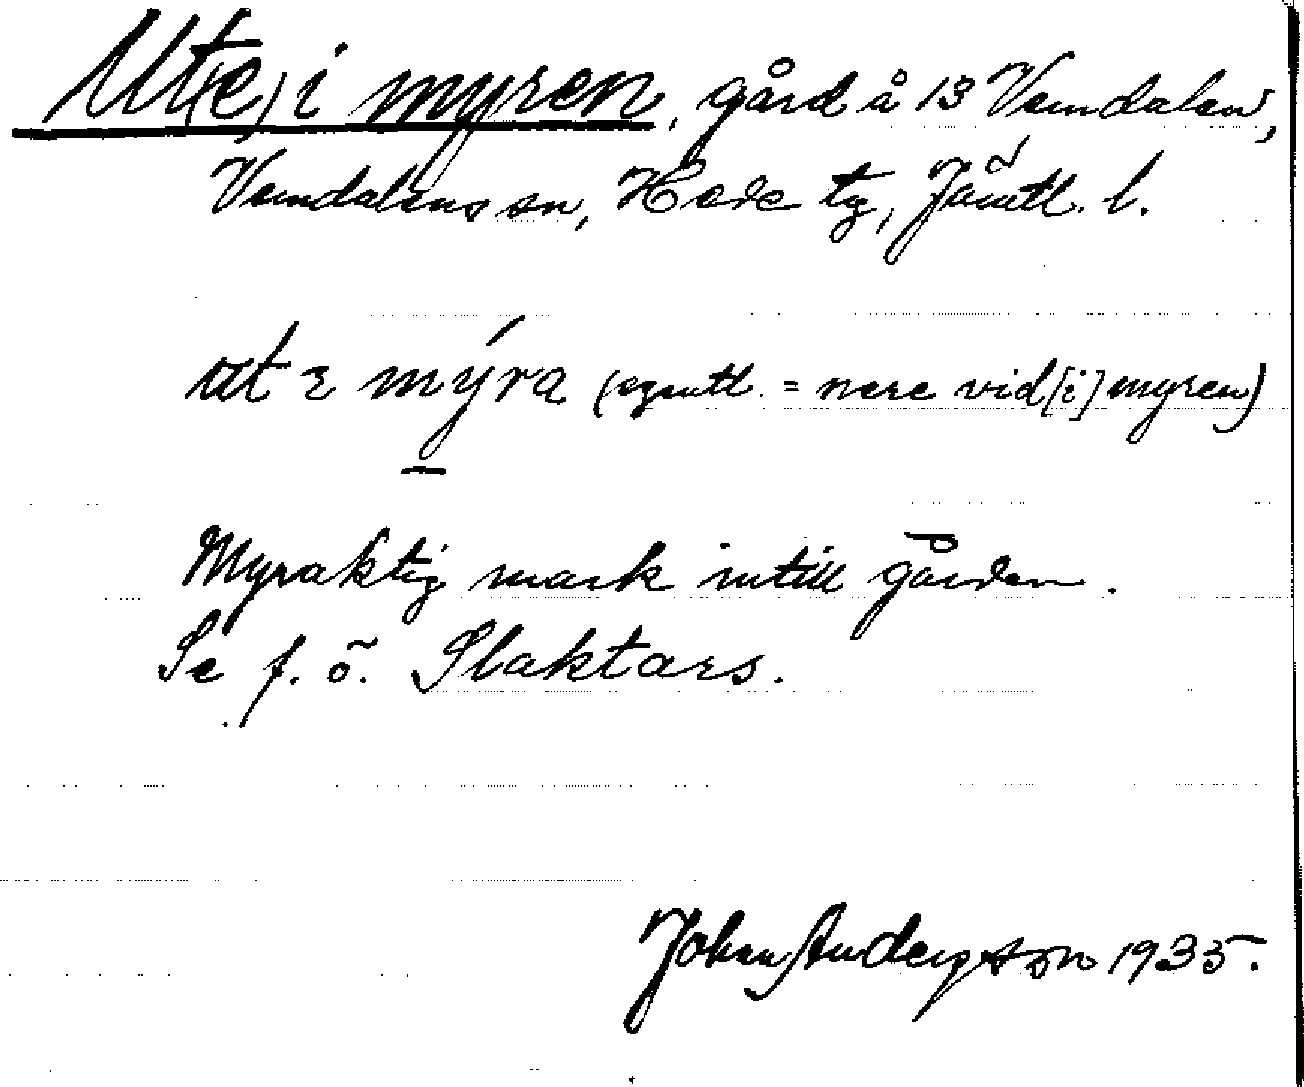 Ut(e) i myren, gård å 13 Vemdalen,
Vemdalens sn, Hede tg, Jämtl. l.
ut ɩ mýra (egentl. = nere vid [i] myren)
Myraktig mark intill gården.
Se f. ö. Slaktars.
Johan Anderson 1935.